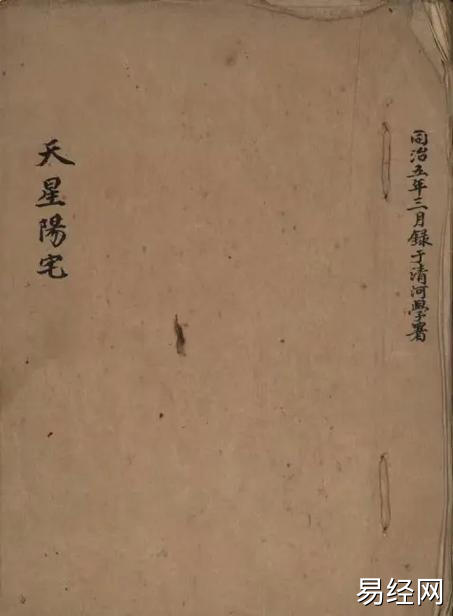 同治五年三月録于清河學署
天星陽宅
易经网